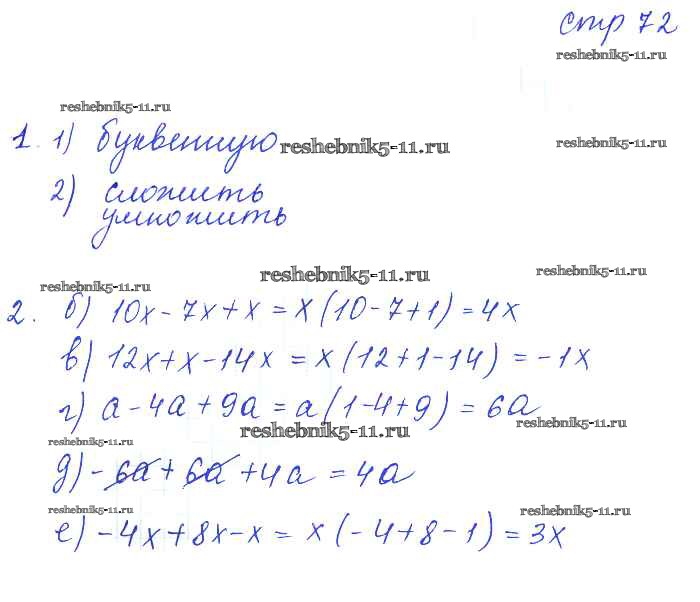 стр 72
reshebnik5-11.ru
reshebnik5-11.ru
1. 1) буквенную reshebnik5-11.ru reshebnik5-11.ru
2) сложить
умножить
reshebnik5-11.ru reshebnik5-11.ru
reshebnik5-11.ru
2. б) 10x - 7x + x = x (10 - 7 + 1) = 4x
в) 12x + x - 14x = x (12 + 1 - 14) = - 1x
г) a - 4a + 9a = a (1 - 4 + 9) = 6a
reshebnik5-11.ru reshebnik5-11.ru
reshebnik5-11.ru
д) - 6a + 6a + 4a = 4a
reshebnik5-11.ru reshebnik5-11.ru
е) - 4x + 8x - x = x (- 4 + 8 - 1) = 3x